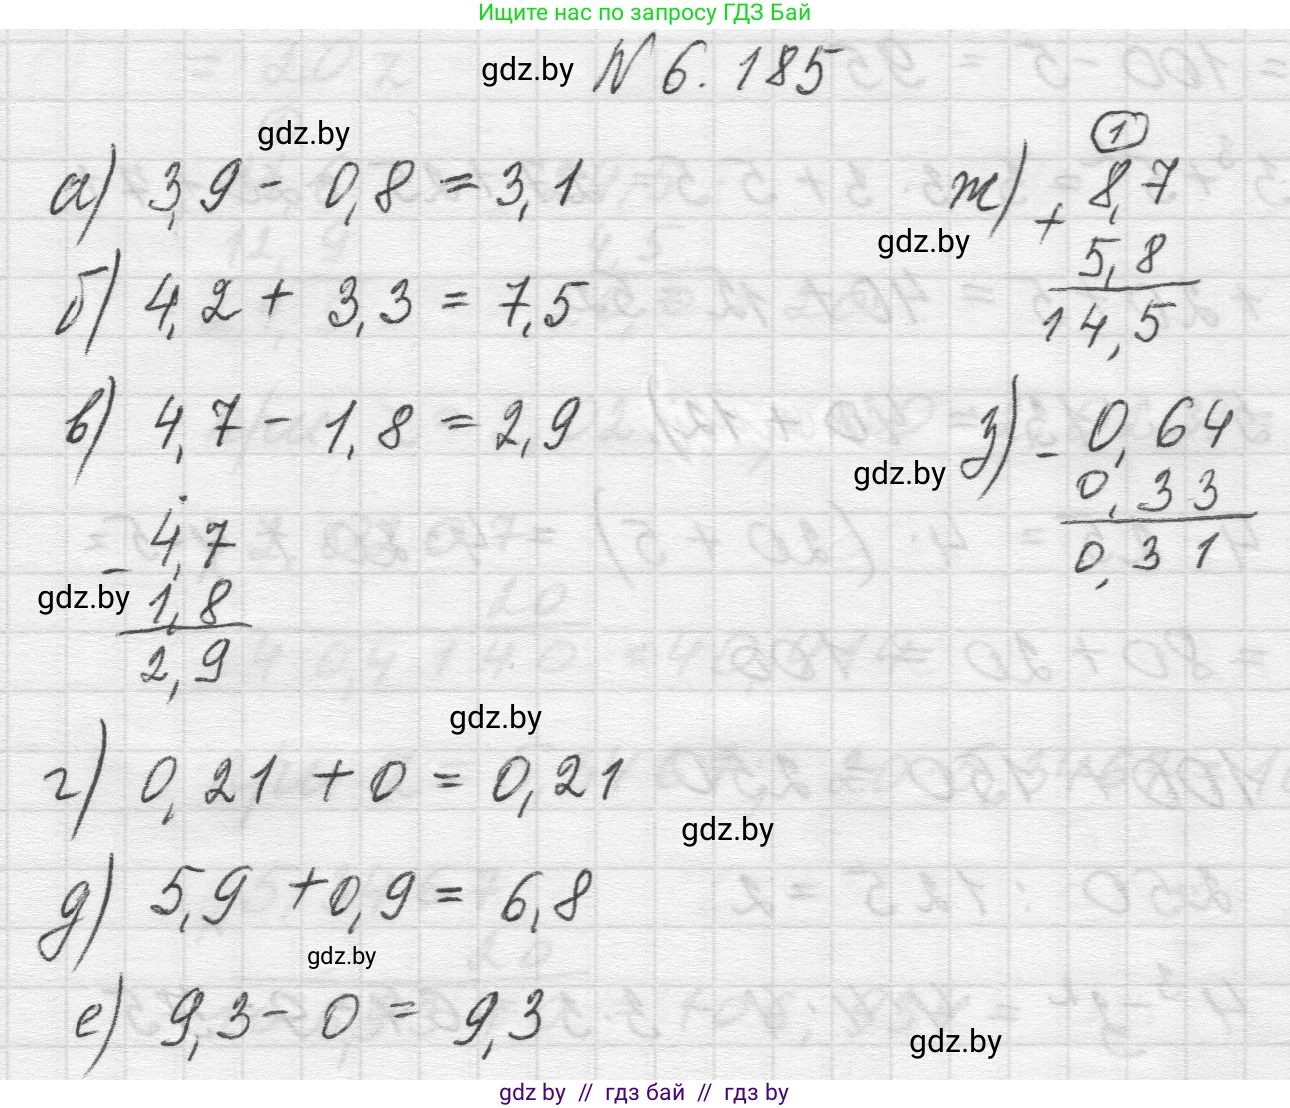 Ищите нас по запросу ГДЗ Бай
gdz.by № 6.185
gdz.by
а) 3,9 - 0,8 = 3,1
б) 4,2 + 3,3 = 7,5
в) 4,7 - 1,8 = 2,9
- 4,7
gdz.by 1,8
2,9
gdz.by
г) 0,21 + 0 = 0,21
gdz.by
д) 5,9 + 0,9 = 6,8
gdz.by
е) 9,3 - 0 = 9,3
gdz.by
1
ж) + 8,7
gdz.by
5,8
14,5
з) - 0,64
gdz.by
0,33
0,31
gdz.by // гдз бай // гдз by